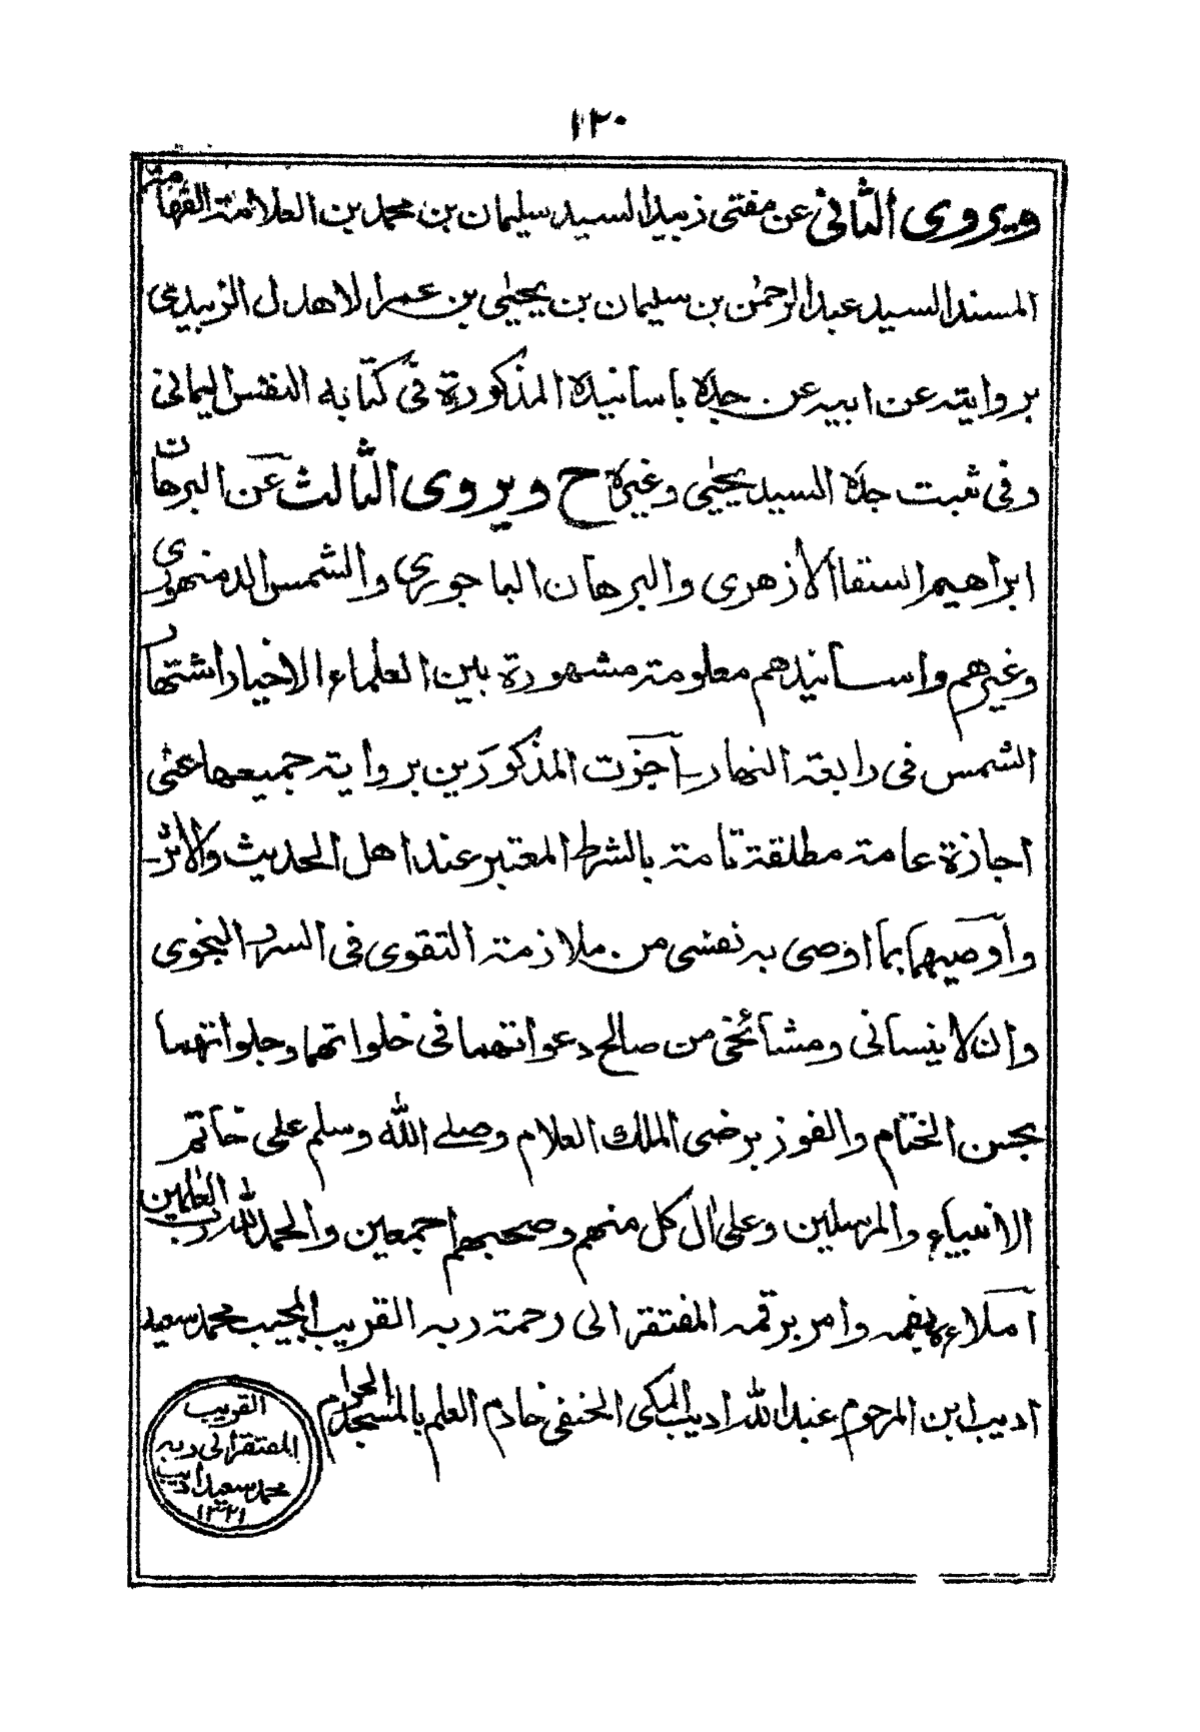 ١٢٠
ويروى الثانى عن مفتى زبيد السيد سليمان بن محمد بن العلامة الفهامة
المسند السيد عبد الرحمٰن بن سليمان بن يحيٰى بن عمر الاهدل الزبيدى
بروايته عن ابيه عن جده باسانيده المذكورة فى كتابه النفس اليمانى
وفى ثبت جده السيد يحيٰى وغيره ح ويروى الثالث عن البرهان
ابراهيم السقا الأزهرى والبرهان الباجورى والشمس الدمنهورى
وغيرهم واسانيدهم معلومة مشهورة بين العلماء الاخيار اشتهار
الشمس فى رابعة النهار أجزت المذكورين برواية جميعها عنى
اجازة عامة مطلقة تامة بالشرط المعتبر عند اهل الحديث والاثر
وأوصيهما بما اوصى به نفسى من ملازمة التقوى فى السر والنجوى
وان لا ينسانى ومشائخى من صالح دعواتهما فى خلواتهما وجلواتهما
بحسن الختام والفوز برضى الملك العلام وصلے الله وسلم على خاتم
الانبياء والمرسلين وعلى اٰل كل منهم وصحبهم اجمعين والحمد لله رب العٰلمين
أملاء بفمه وامر برقمه المفتقر الى رحمة ربه القريب المجيب محمد سعيد
اديب ابن المرحوم عبد الله اديب المكى الحنفى خادم العلم بالمسجد الحرام
القريب
المفتقر الى ربه
محمد سعيد اديب
١٣٢١